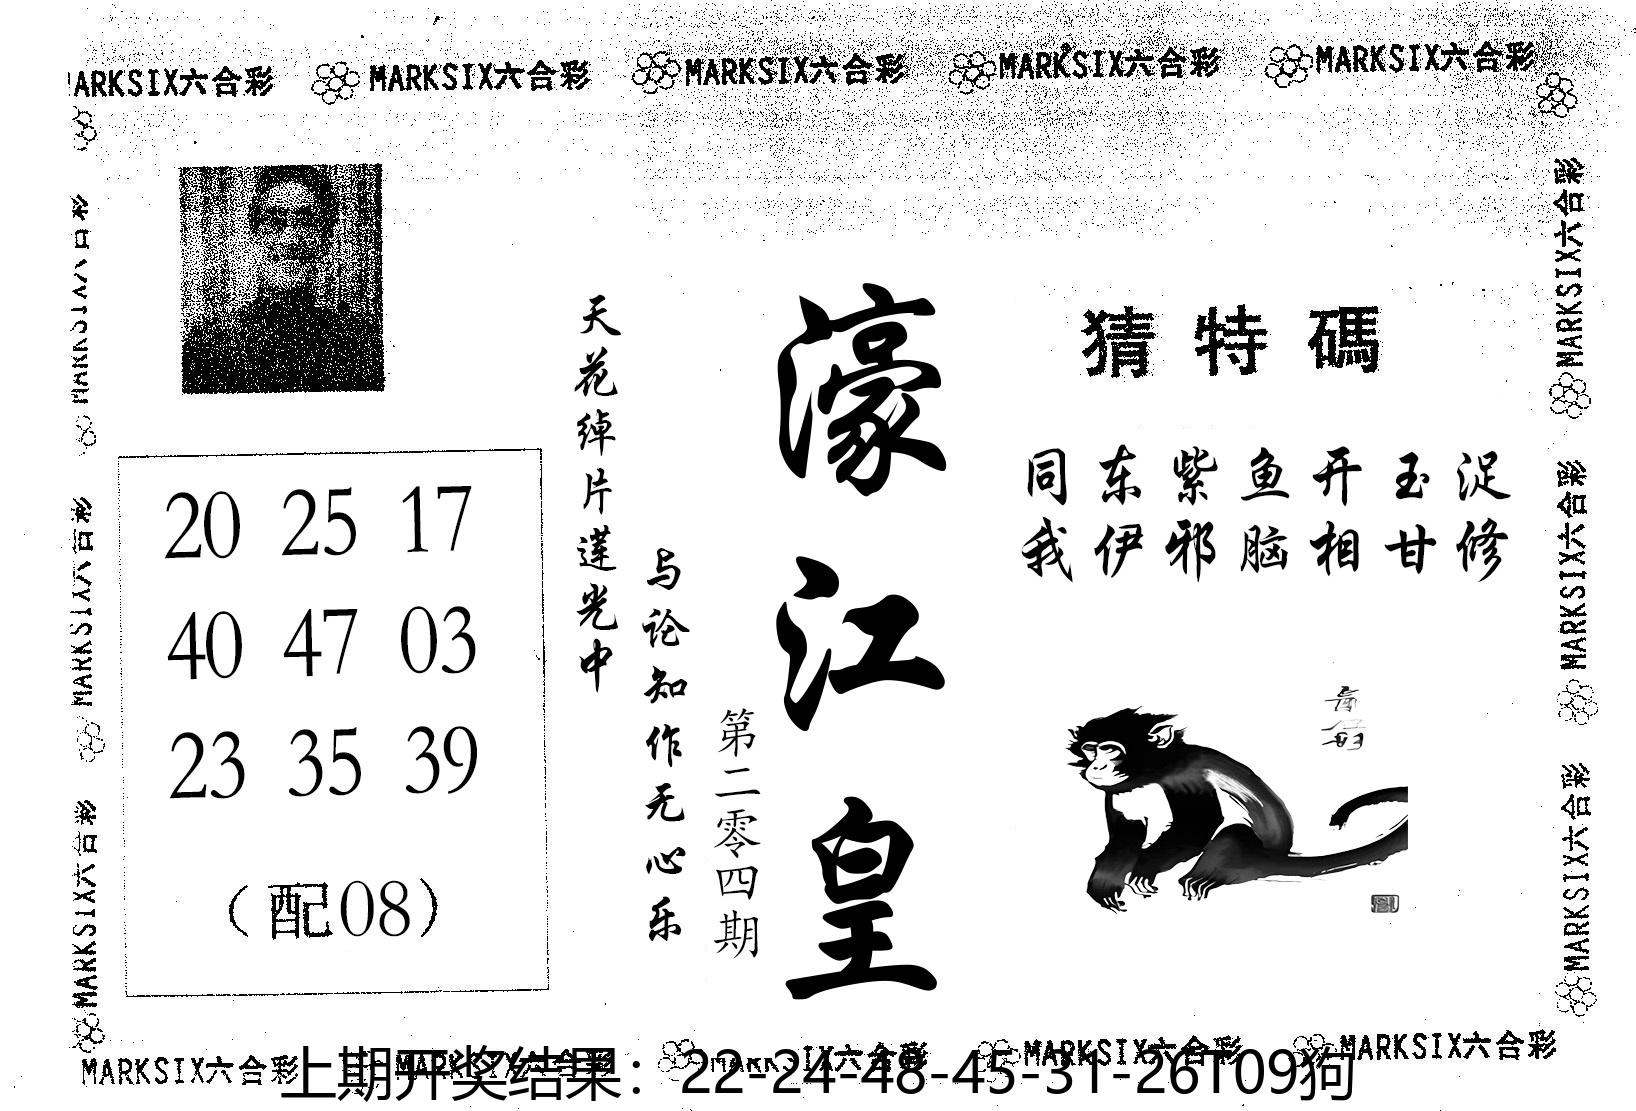 MARKSIX六合彩 MARKSIX六合彩 MARKSIX六合彩 MARKSIX六合彩 MARKSIX六合彩
MARKSIX六合彩
MARKSIX六合彩
MARKSIX六合彩
20 25 17
40 47 03
23 35 39
（配08）
天花绰片莲光中
与论知作无心乐
第二零四期
濠江皇
猜特碼
同东紫鱼开玉浞
我伊邪脑相甘修
MARKSIX六合彩
MARKSIX六合彩
MARKSIX六合彩
MARKSIX六合彩 MARKSIX六合彩 MARKSIX六合彩 MARKSIX六合彩 MARKSIX六合彩
上期开奖结果：22-24-48-45-31-26T09狗